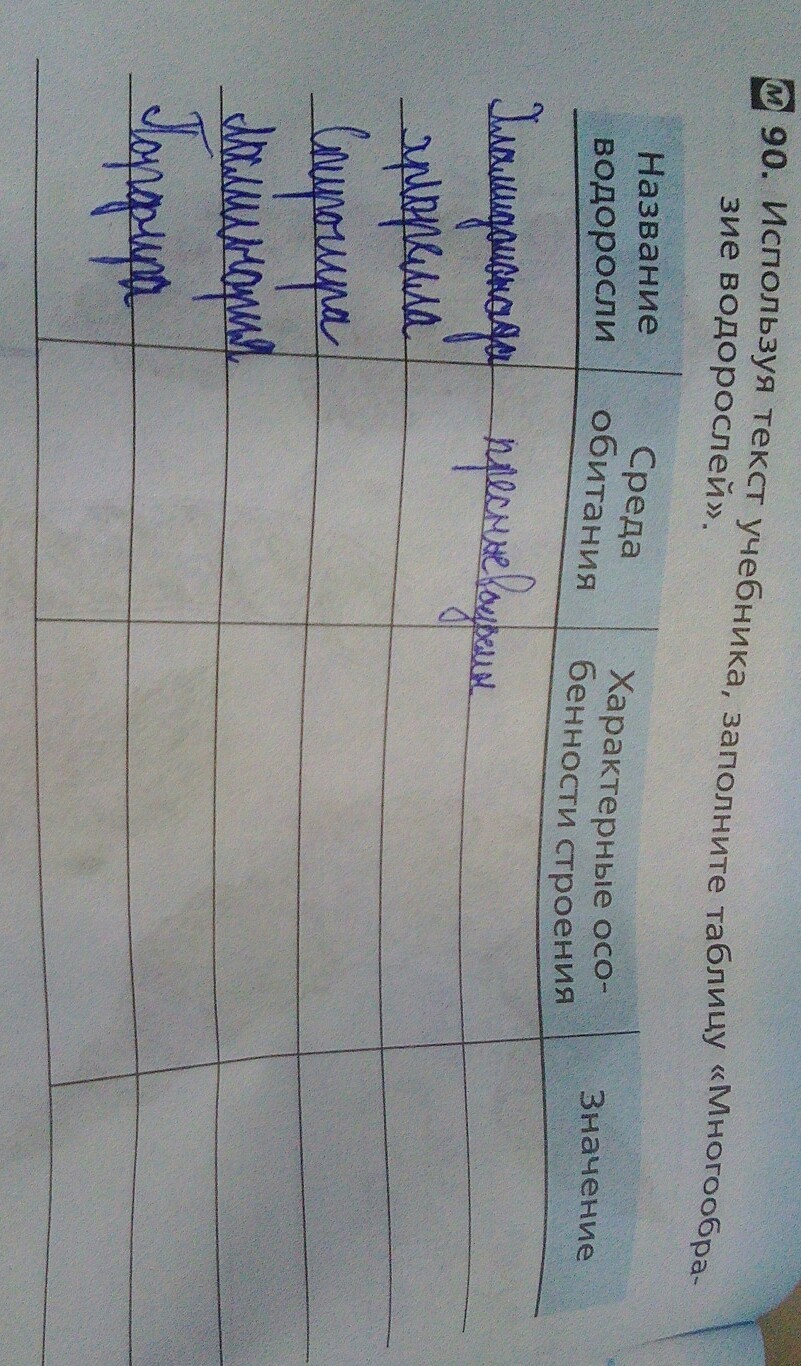 М 90. Используя текст учебника, заполните таблицу «Многообра-
зие водорослей».
Название водоросли
Среда обитания
Характерные осо-
бенности строения
Значение
Хламидомонада
пресные водоемы
хлорелла
Спирогира
Ламинария
Порфира